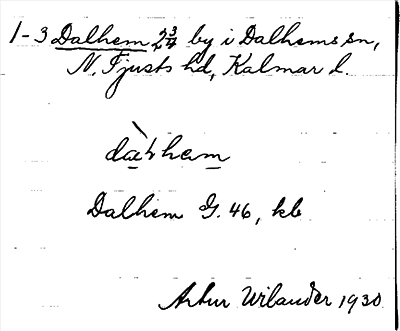 1-3 Dalhem 2 3/4 by i Dalhems sn,
N. Tjusts hd, Kalmar l.
dàłham
Dalhem G. 46, kb
Artur Wilander 1930